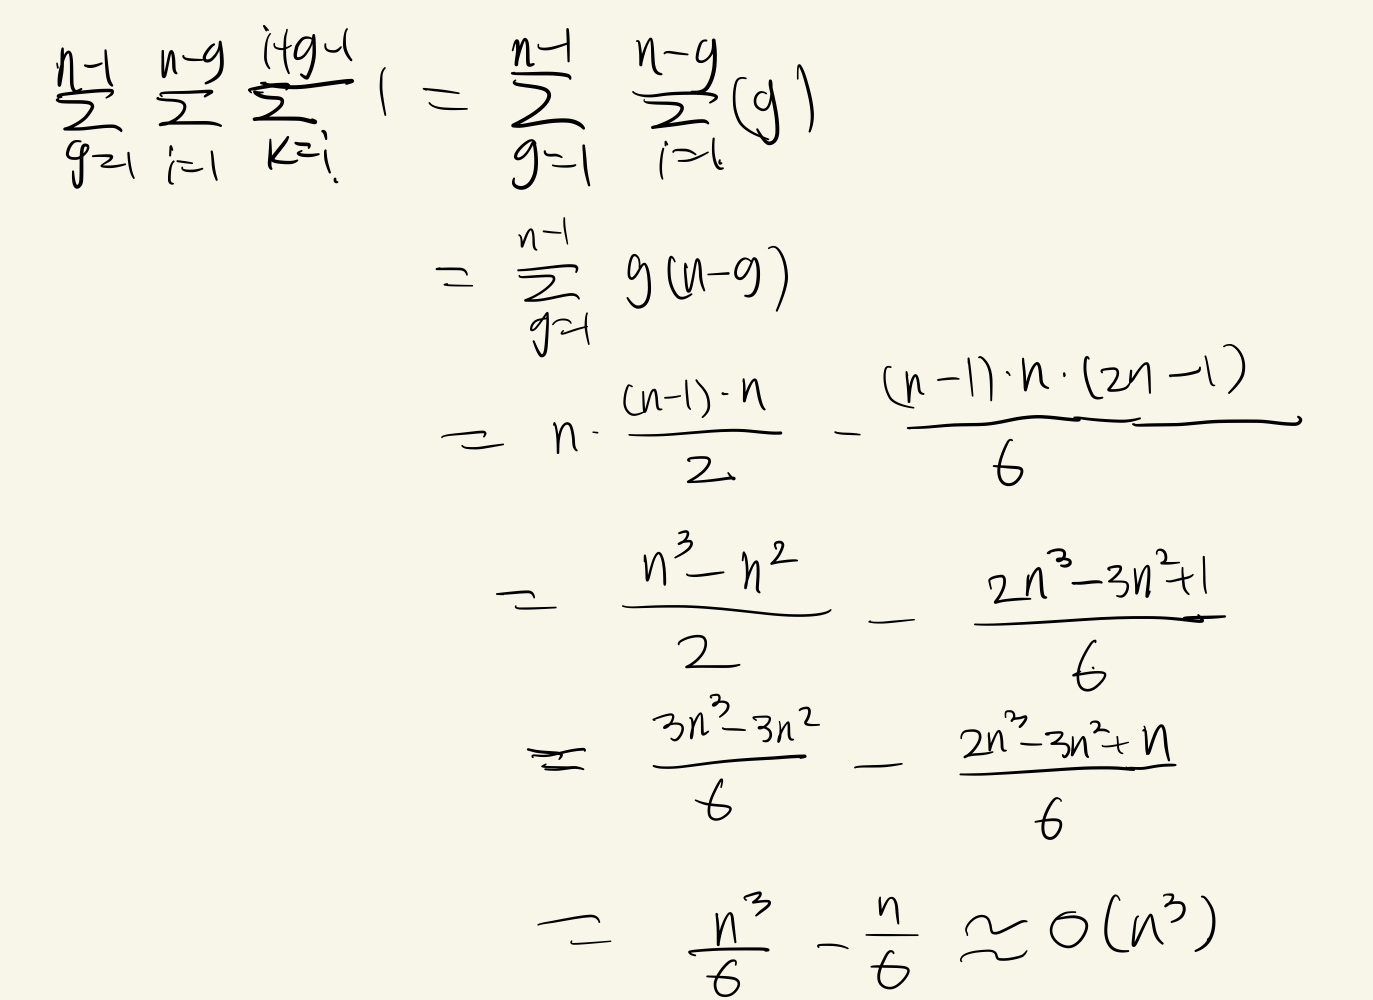 $\sum_{g=1}^{n-1} \sum_{i=1}^{n-g} \sum_{k=i}^{i+g-1} 1 = \sum_{g=1}^{n-1} \sum_{i=1}^{n-g} (g)$
$= \sum_{g=1}^{n-1} g(n-g)$
$= n \cdot \frac{(n-1) \cdot n}{2} - \frac{(n-1) \cdot n \cdot (2n-1)}{6}$
$= \frac{n^3 - n^2}{2} - \frac{2n^3 - 3n^2 + 1}{6}$
$= \frac{3n^3 - 3n^2}{6} - \frac{2n^3 - 3n^2 + n}{6}$
$= \frac{n^3}{6} - \frac{n}{6} \approx O(n^3)$